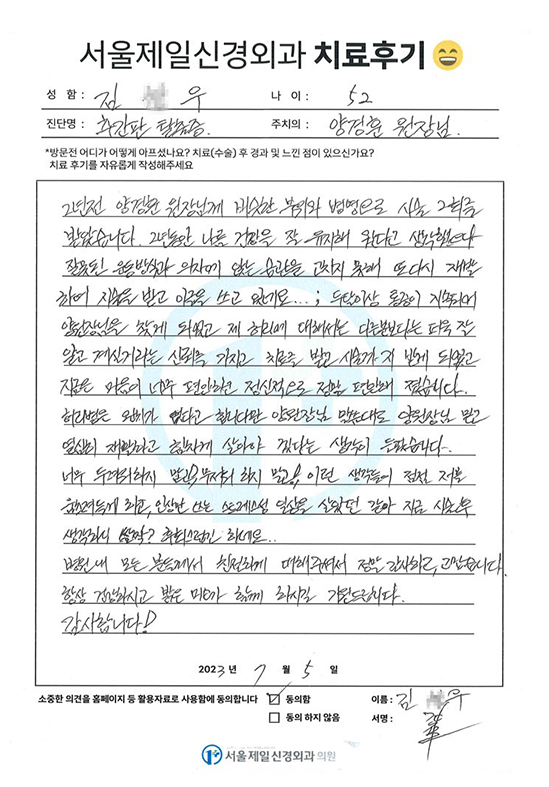 서울제일신경외과 치료후기
성 함 : 김 우 나 이 : 52
진단명 : 추간판 탈출증 주치의 : 양경훈 원장님
*방문전 어디가 어떻게 아프셨나요? 치료(수술) 후 경과 및 느낀 점이 있으신가요?
치료 후기를 자유롭게 작성해주세요
2년전 양경훈 원장님께 비슷한 부위와 병명으로 시술 2회를
받았습니다. 2년동안 나름 건강을 잘 유지해 왔다고 생각했는데
잘못된 운동방식과 의자에 앉는 습관을 고치지 못해 또다시 재발
하여 시술을 받고 이글을 쓰고 있네요...; 두달이상 통증이 지속되며
양원장님을 찾게 되었고 제 허리에 대해서는 다른분보다는 더욱 잘
알고 계신거라는 신뢰를 가지고 치료를 받고 시술까지 받게 되었고
지금은 마음이 너무 편안하고 정신적으로 정말 편안해 졌습니다.
허리병은 완치가 없다고 합니다만 양원장님 말씀대로 양원장님 믿고
열심히 재활하고 힘차게 살아야 겠다는 생각이 듭니다.
너무 두려워하지 말고, 무서워 하지 말고, 이런 생각들이 점점
회피, 인상만 쓰는 스트레스성 일상을 살았던 같아 지금 시술후
생각하니 살짝? 후회스럽긴 하네요..
병원내 모든 분들께서 친절하게 대해주셔서 정말 감사하고, 고맙습니다.
항상 건강하시고 밝은 미소가 함께 하시길 기원드립니다.
감사합니다!
2023 년 7 월 5 일
소중한 의견을 홈페이지 등 활용자료로 사용함에 동의합니다 동의함 이름 : 김 우
동의 하지 않음 서명 :
서울제일신경외과의원